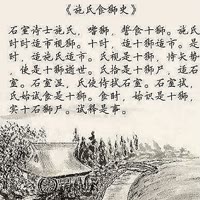 《施氏食獅史》
石室诗士施氏，嗜獅，誓食十獅。施氏
时时适市視獅。十时，适十獅适市。是
时，适施氏适市。氏視是十獅，恃矢势
，使是十獅逝世。氏拾是十獅尸，适石
室。石室湿，氏使侍拭石室。石室拭，
氏始试食是十獅。食时，始识是十獅，
实十石獅尸。试釋是事。